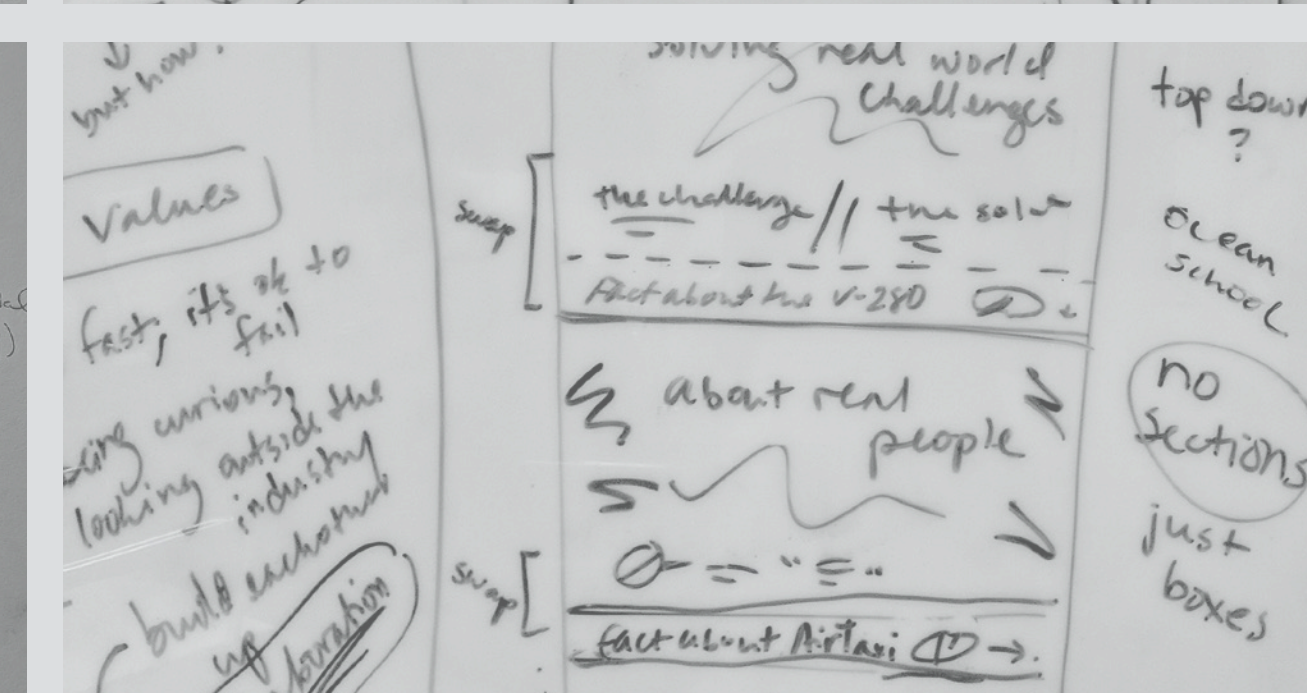 but how?
values
fast; it's ok to
fail
being curious,
looking outside the
industry
build eachother
up
swap
swap
solving real world
challenges
the challenge // the solut
Fact about the V-280
about real
people
fact about AirTaxi
top down
?
ocean
school
no
sections
just
boxes